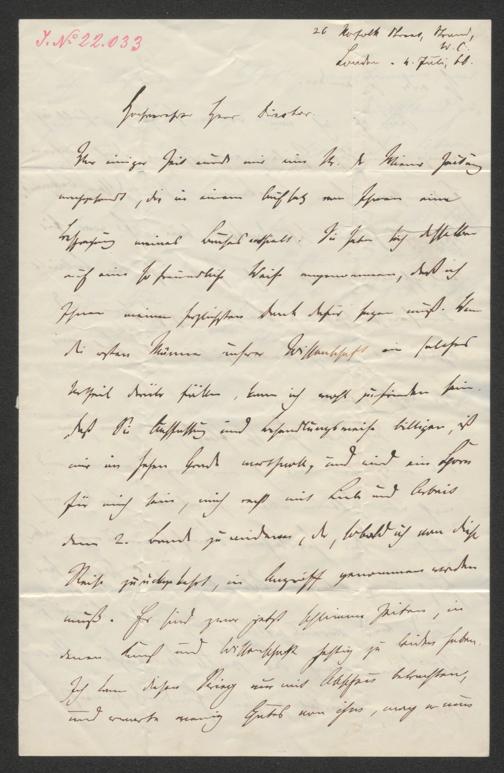 J. No 22.033
26 Norfolk Street, Strand,
W. C.
London. 4. Juli, 66.
Hochverehrter Herr Director.
Vor einiger Zeit wurde mir eine Nr. der Wiener Zeitung
nachgesandt, die in einem Aufsatz von Ihnen eine
Besprechung meines Buches enthält. Sie haben sich desselben
auf eine so freundliche Weise angenommen, daß ich
Ihnen meinen herzlichsten Dank dafür sagen muß. Wenn
die ersten Männer unsrer Wissenschaft ein solches
Urtheil darüber fällen, kann ich wohl zufrieden sein.
Daß Sie Auffassung und Behandlungsweise billigen, ist
mir im hohen Grade werthvoll, und wird ein Sporn
für mich sein, mich recht mit Liebe und Arbeit
dem 2. Bande zu widmen, der, sobald ich von dieser
Reise zurückgekehrt, in Angriff genommen werden
muß. Es sind zwar jetzt schlimme Zeiten, in
denen Kunst und Wissenschaft heftig zu leiden haben.
Ich kann diesen Krieg nur mit Abscheu betrachten,
und erwarte wenig Gutes von ihm, mag er nun